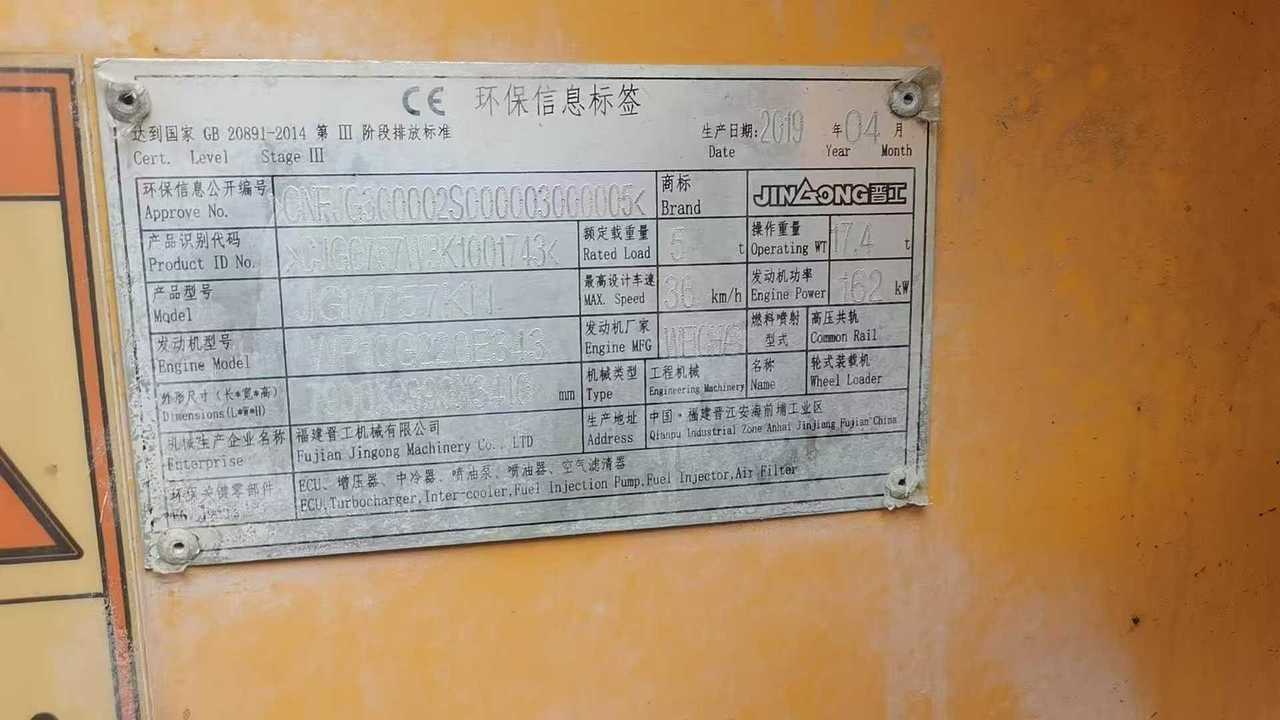 CE 环保信息标签
达到国家 GB 20891-2014 第 III 阶段排放标准
Cert. Level Stage III
生产日期: 2019 年 04 月
Date Year Month
环保信息公开编号 CNFJG300002S000003000005<
Approve No.
商标
Brand
JINGONG晋工
产品识别代码
Product ID No.
额定载重量 5 t
Rated Load
操作重量 17.4 t
Operating WT
产品型号
Model
最高设计车速 36 km/h
MAX. Speed
发动机功率 162 kW
Engine Power
发动机型号
Engine Model
发动机厂家
Engine MFG
燃料喷射型式
高压共轨
Common Rail
外形尺寸(长*宽*高) mm
Dimensions(L*W*H)
机械类型
Type
工程机械
Engineering Machinery
名称
Name
轮式装载机
Wheel Loader
机械生产企业名称
Enterprise
福建晋工机械有限公司
Fujian Jingong Machinery Co., LTD
生产地址
Address
中国·福建晋江安海前埔工业区
Qianpu Industrial Zone Anhai Jinjiang Fujian China
环保关键零部件
ECU、增压器、中冷器、喷油泵、喷油器、空气滤清器
ECU,Turbocharger,Inter-cooler,Fuel Injection Pump,Fuel Injector,Air Filter